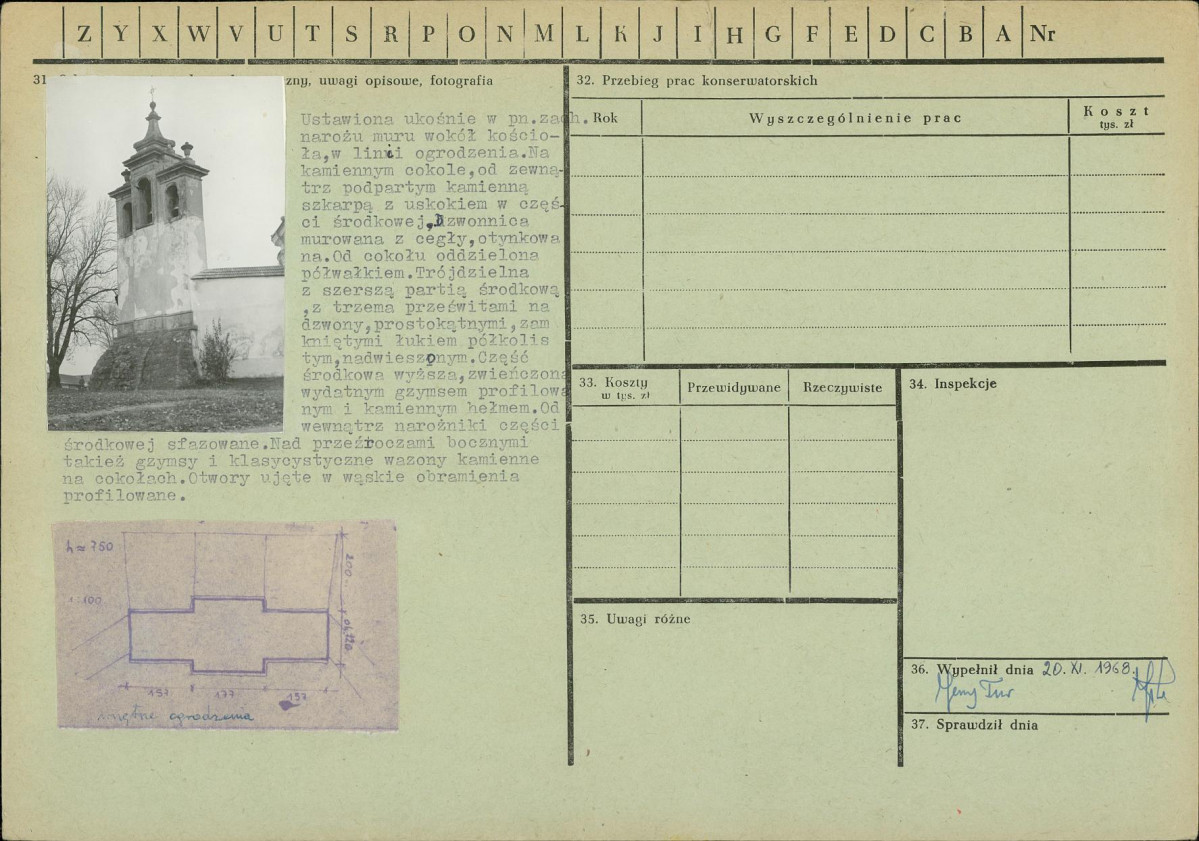 Z Y X W V U T S R P O N M L K J I H G F E D C B A Nr
31. zny, uwagi opisowe, fotografia
Ustawiona ukośnie w pn.zach.
narożu muru wokół kościo-
ła,w linii ogrodzenia.Na
kamiennym cokole,od zewną-
trz podpartym kamienną
szkarpą z uskokiem w częś-
ci środkowej,Dzwonnica
murowana z cegły,otynkowa
na.Od cokołu oddzielona
półwałkiem.Trójdzielna
z szerszą partią środkową
,z trzema prześwitami na
dzwony,prostokątnymi,zam
kniętymi łukiem półkolis
tym,nadwieszonym.Część
środkowa wyższa,zwieńczona
wydatnym gzymsem profilowa
nym i kamiennym hełmem.Od
wewnątrz narożniki części
środkowej sfazowane.Nad przeźroczami bocznymi
takież gzymsy i klasycystyczne wazony kamienne
na cokołach.Otwory ujęte w wąskie obramienia
profilowane.
h = 750
1:100
200
157 177 157
ogrodzenia
32. Przebieg prac konserwatorskich
Rok Wyszczególnienie prac Koszt
tys. zł
33. Koszty
w tys. zł
Przewidywane Rzeczywiste
34. Inspekcje
35. Uwagi różne
36. Wypełnił dnia 20. XI. 1968.
37. Sprawdził dnia